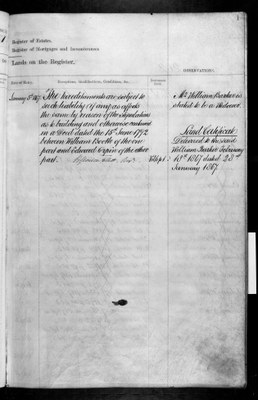 Register of Estates.
Register of Mortgages and Incumbrances.
Lands on the Register.
OBSERVATIONS.
Date of Entry.
Exceptions, Qualifications, Conditions, &c.
January 15th 1867
The hereditaments are subject to
such liability if any as affects
the same by reason of the stipulations
as to building and otherwise contained
in a Deed dated the 18th June 1792
between William Booth of the one
part and Edward of the other
part.
Mr. William Barker is
stated to be a Widower.
Land Certificate
Delivered to the said
William Barker February
18th 1867 dated 23rd
January 1867.